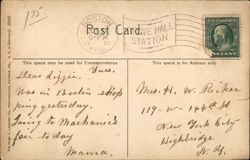 175
BOSTON
Post Card.
BACK BAY STATION
This space may be used for Correspondence
This space is for Address only
Tues.
Dear Lizzie,
Was in Boston shopping yesterday.
Going to Mechanic's fair to-day
Mama.
Mrs. H. W. Riker
119-W-144th St
New York City
Highbridge
N.Y.